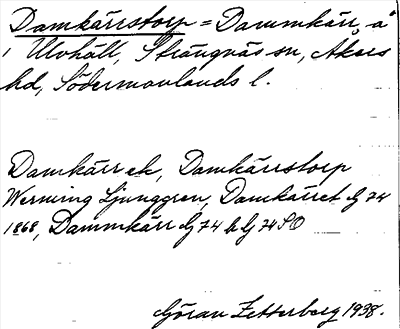 Damkärrstorp = Dammkärr, å
i Ulvhäll, Strängnäs sn, Åkers
hd, Södermanlands l.
Damkärr ek, Damkärrstorp
Werming Ljunggren, Damkärret Gj 74
1868, Dammkärr Gj 74 h Gj 74 SO
Göran Zetterberg 1938.